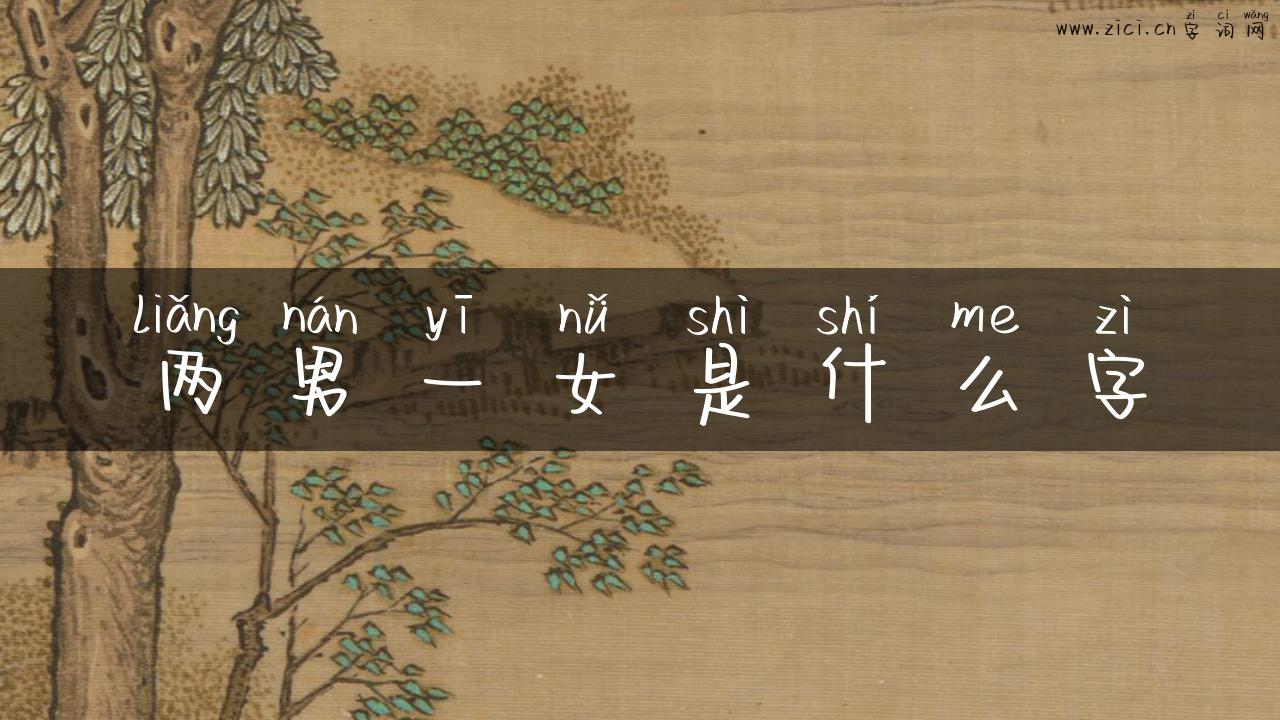 zì cí wǎng
www.zici.cn 字词网
liǎng nán yī nǚ shì shí me zì
两男一女是什么字